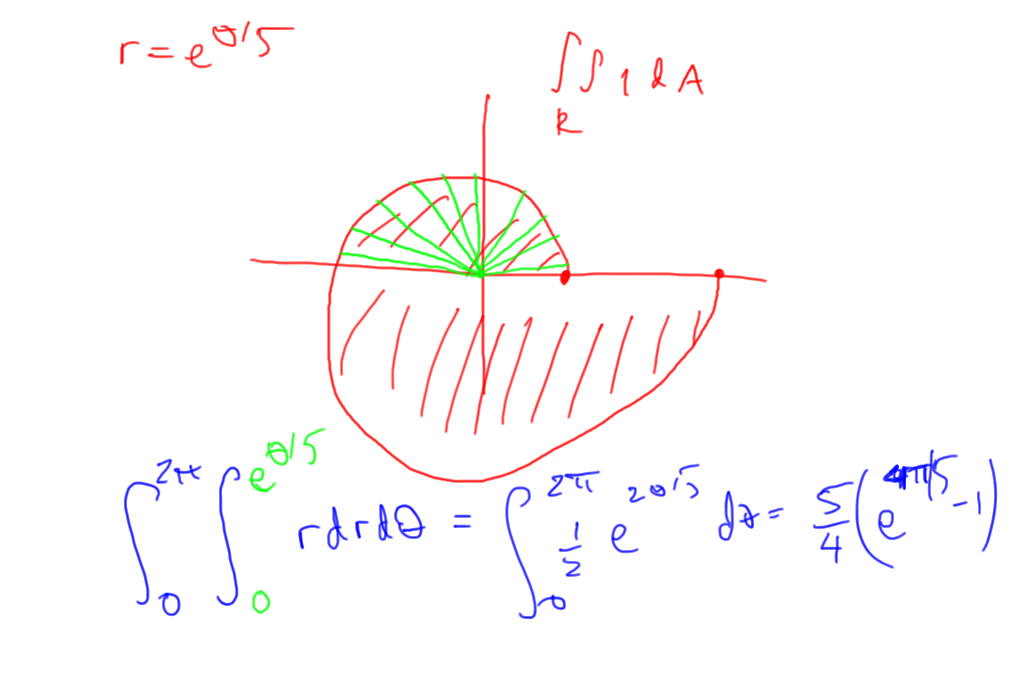 r = e^{θ/5}
∫∫_R 1 dA
∫_0^{2π} ∫_0^{e^{θ/5}} r dr dθ = ∫_0^{2π} 1/2 e^{2θ/5} dθ = 5/4 (e^{4π/5} - 1)